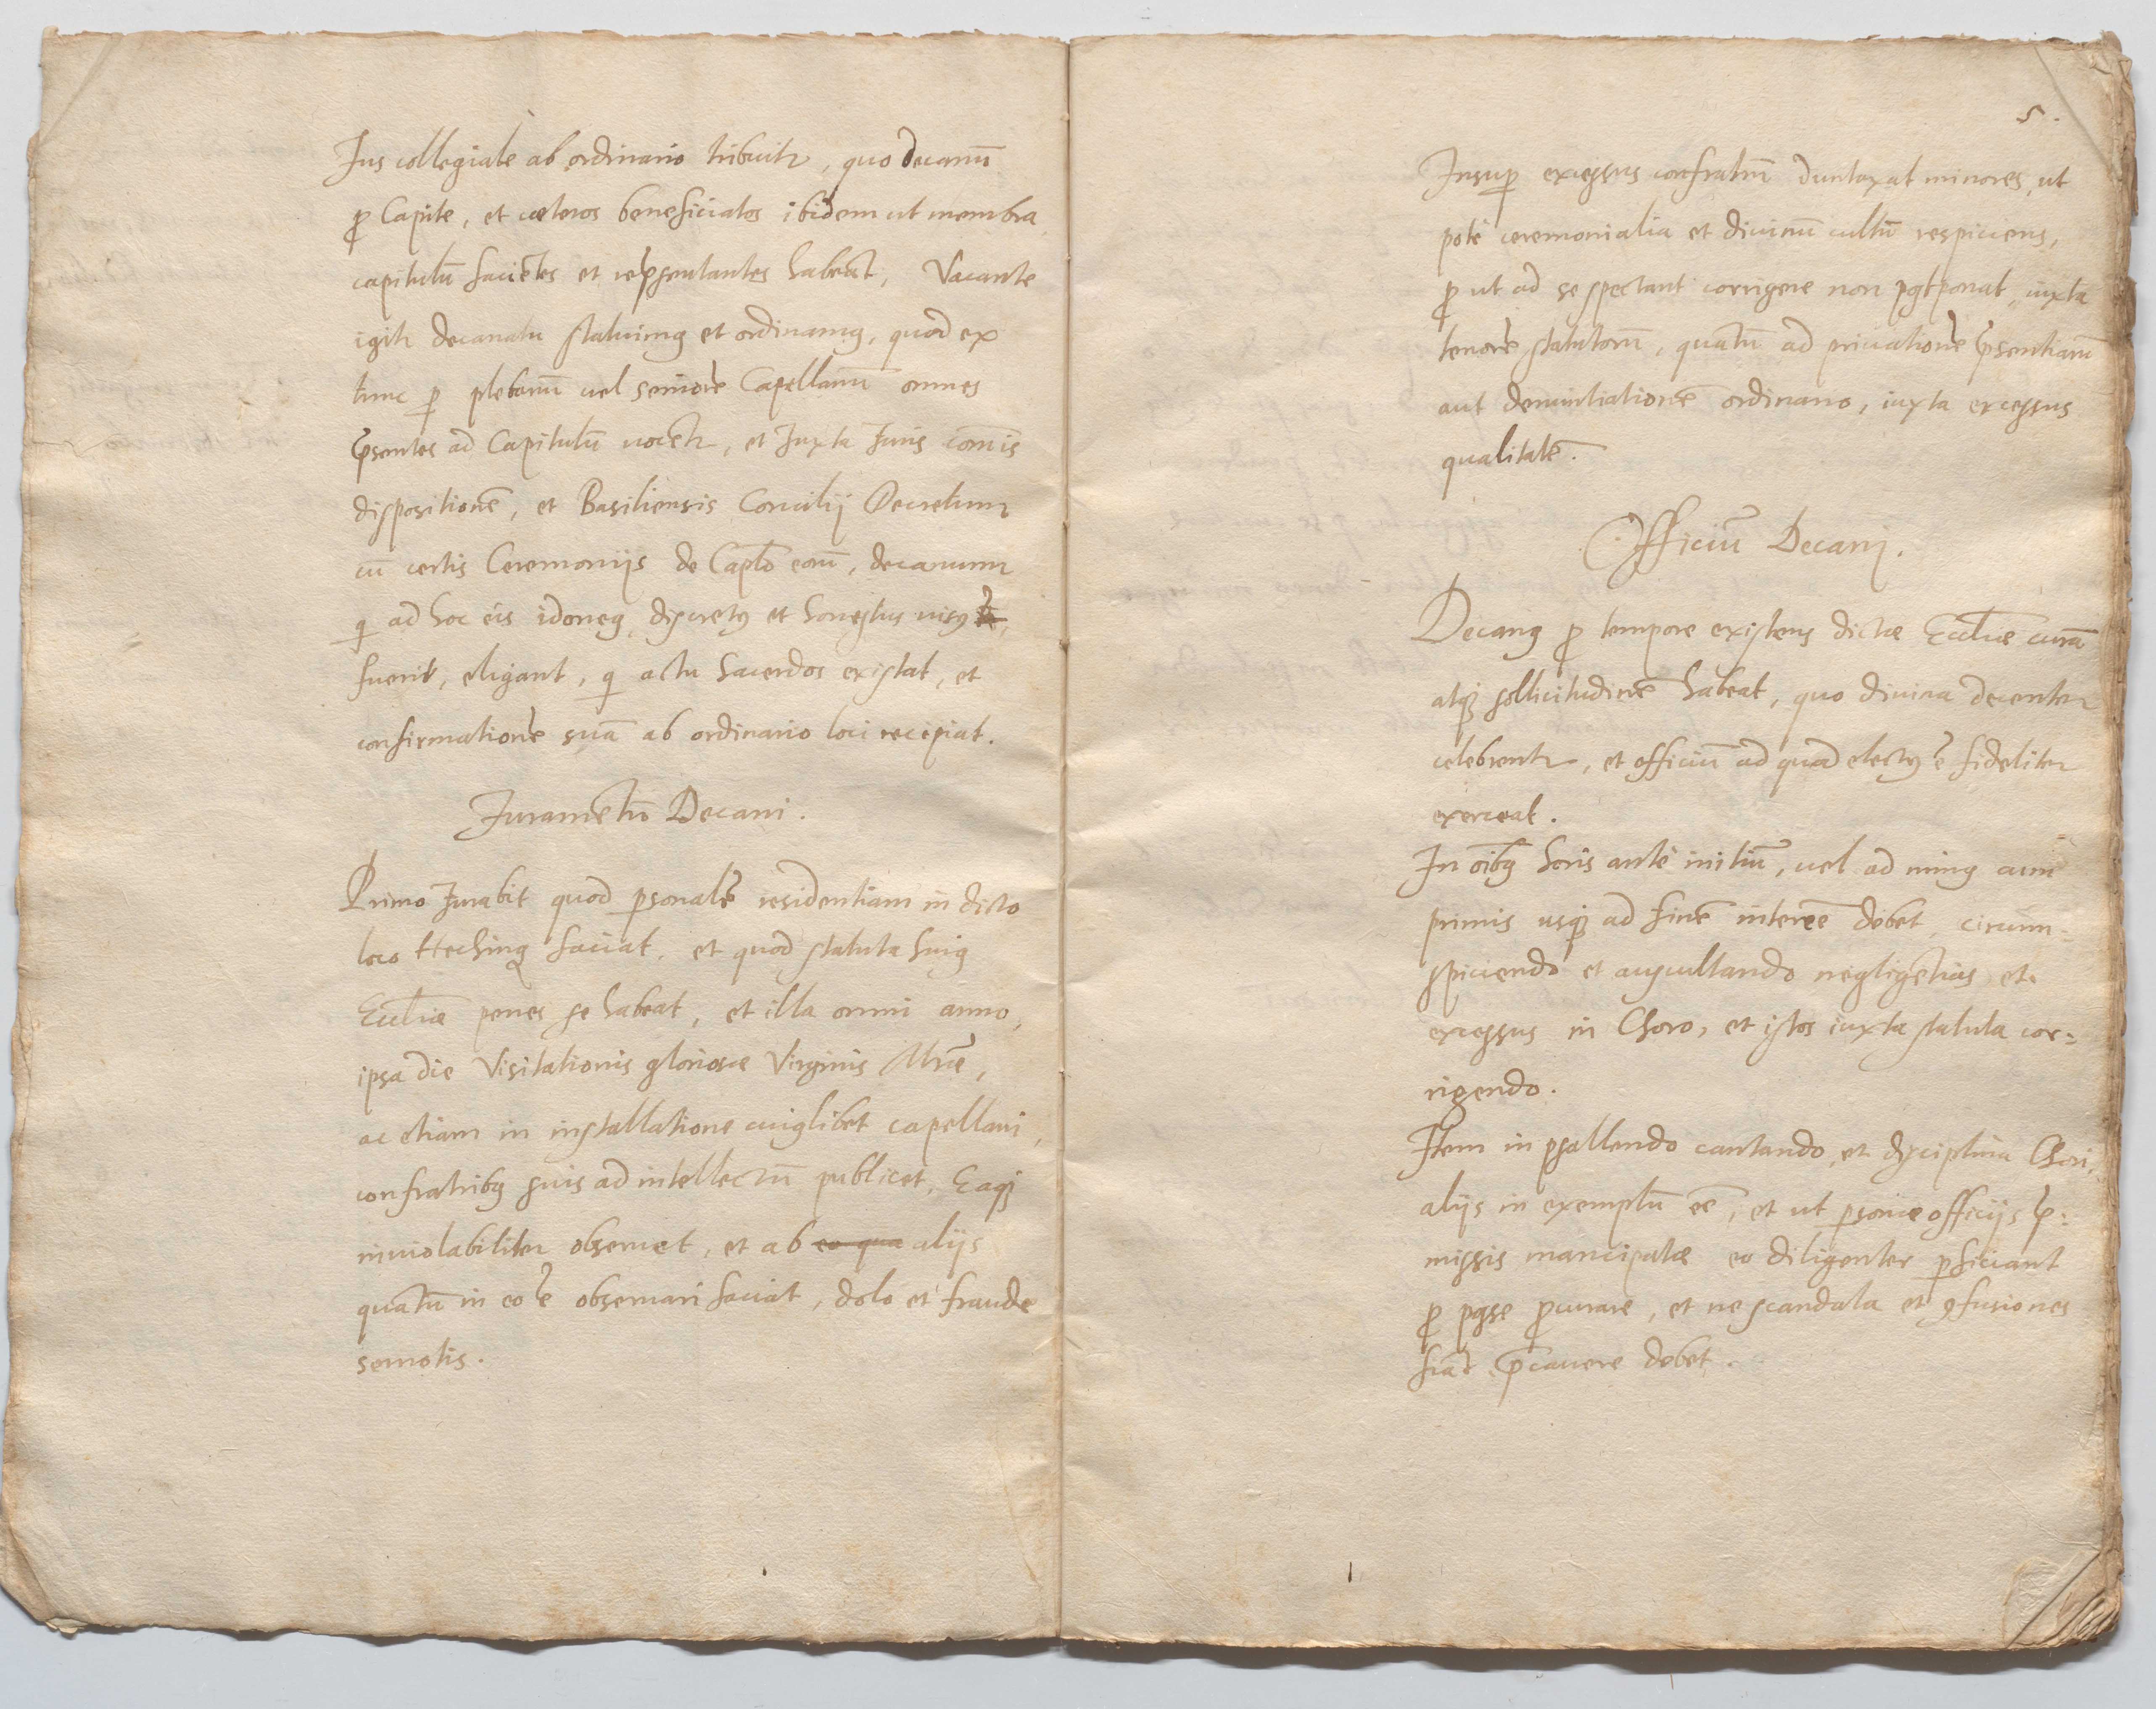 Jus collegiale ab ordinario tribuitr, quo decanū
ꝓ Capite, et cæteros beneficiatos ibidem ut membra
capitulū faciētes et repsentantes habeāt, Vacante
igitr decanatu statuimꝰ et ordinamꝰ, quod ex
tunc ꝑ plebanū vel seniorē Capellanū omnes
p̄sentes ad Capitulū vocētr, et Juxta Juris com̄is
dispositionē, et Basiliensis Concilij Decretum
cū certis Ceremonijs de Capło eorū, decanum
qi ad hoc eis idoneꝰ, discretꝰ et honestus visꝰ
fuerit, eligant, qi actu Sacerdos existat, et
confirmationē suā ab ordinario loci recipiat.
Juramētū Decani.
Primo Jurabit quod ꝑsonalē residentiam in dicto
loco Hechinꝫ faciat, et quod statuta huiꝰ
Eccłiæ penes se habeat, et illa omni anno,
ipsa die Visitationis gloriosæ Virginis Mr̄iæ,
ac etiam in installatione cuiꝰlibet capellani,
confratribꝰ suis ad intellectū publicet, Eaqꝫ
inviolabiliter observet, et ab eo qua alijs
quātū in eo ē observari faciat, dolo et fraude
semotis.
5.
Insuꝑ excessus confratrū duntaxat minores, ut
pote ceremonialia et divinū cultū respiciens,
ꝓ ut ad se spectant corrigere non pꝰtponat, iuxta
tenorē statutorū, quātū ad privationē p̄sentiarū
aut denuntiationē ordinario, iuxta excessus
qualitatē.
Officiū Decani.
Decanꝰ ꝓ tempore existens dictæ Eccłiæ curā
atqꝫ sollicitudinē habeat, quo divina decenter
celebrentr, et officiū ad quod electꝰ ē fideliter
exerceat.
In oībꝰ horis ante initiū, vel ad minꝰ cum
primis usqꝫ ad finē intereē debet, circum=
spiciendo et auscultando negligētias et
excessus in Choro, et istos iuxta statuta cor=
rigendo.
Item in psallendo cantando, et disciplina Chori,
alijs in exemplū eē, et ut ꝑsonæ officijs p̄=
missis mancipatæ eo diligenter ꝑficiant
ꝓ pꝰse ꝓcurare, et ne scandala et ꝯfusiones
fiāt p̄cavere debet.